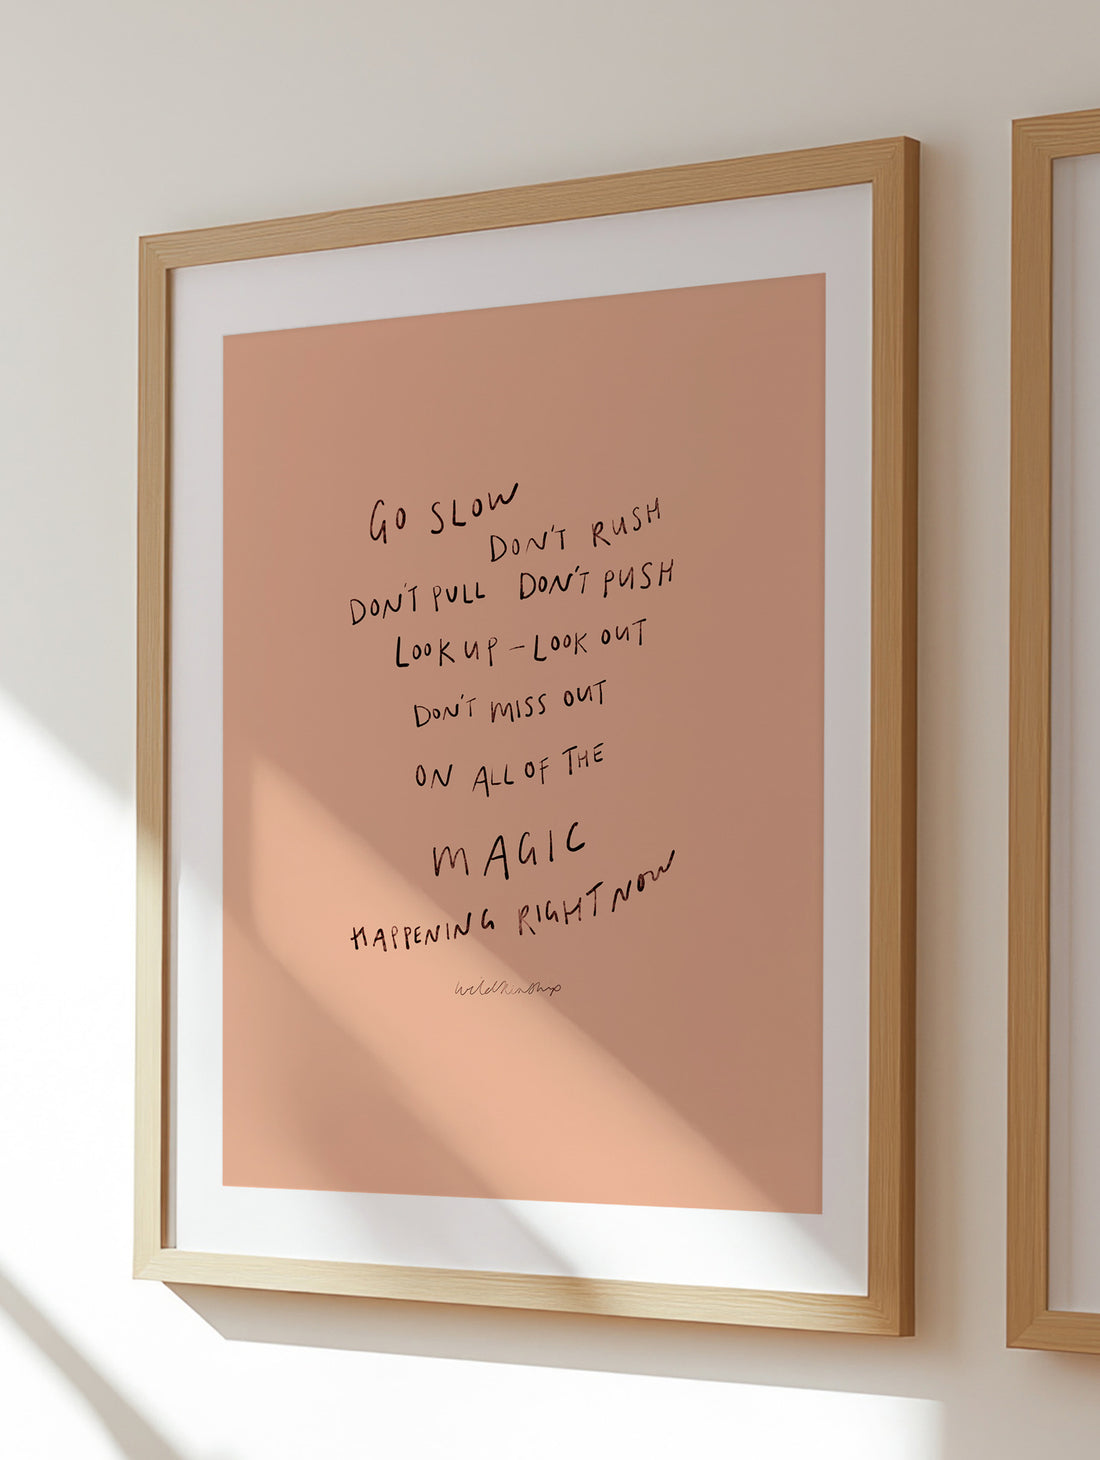 GO SLOW
DON'T RUSH
DON'T PULL DON'T PUSH
LOOK UP - LOOK OUT
DON'T MISS OUT
ON ALL OF THE
MAGIC
HAPPENING RIGHT NOW
wildkinship